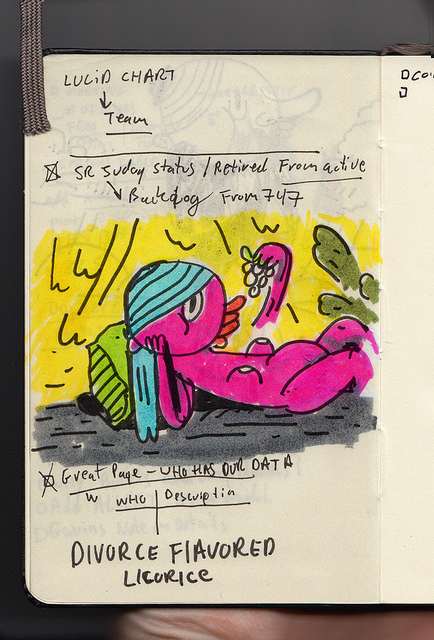 LUCID CHART
Team
SR Suday Status / Retired From active
Backlog From 747
Great Page - WHO HAS OUR DATA
W WHO Description
DIVORCE FLAVORED
LICORICE